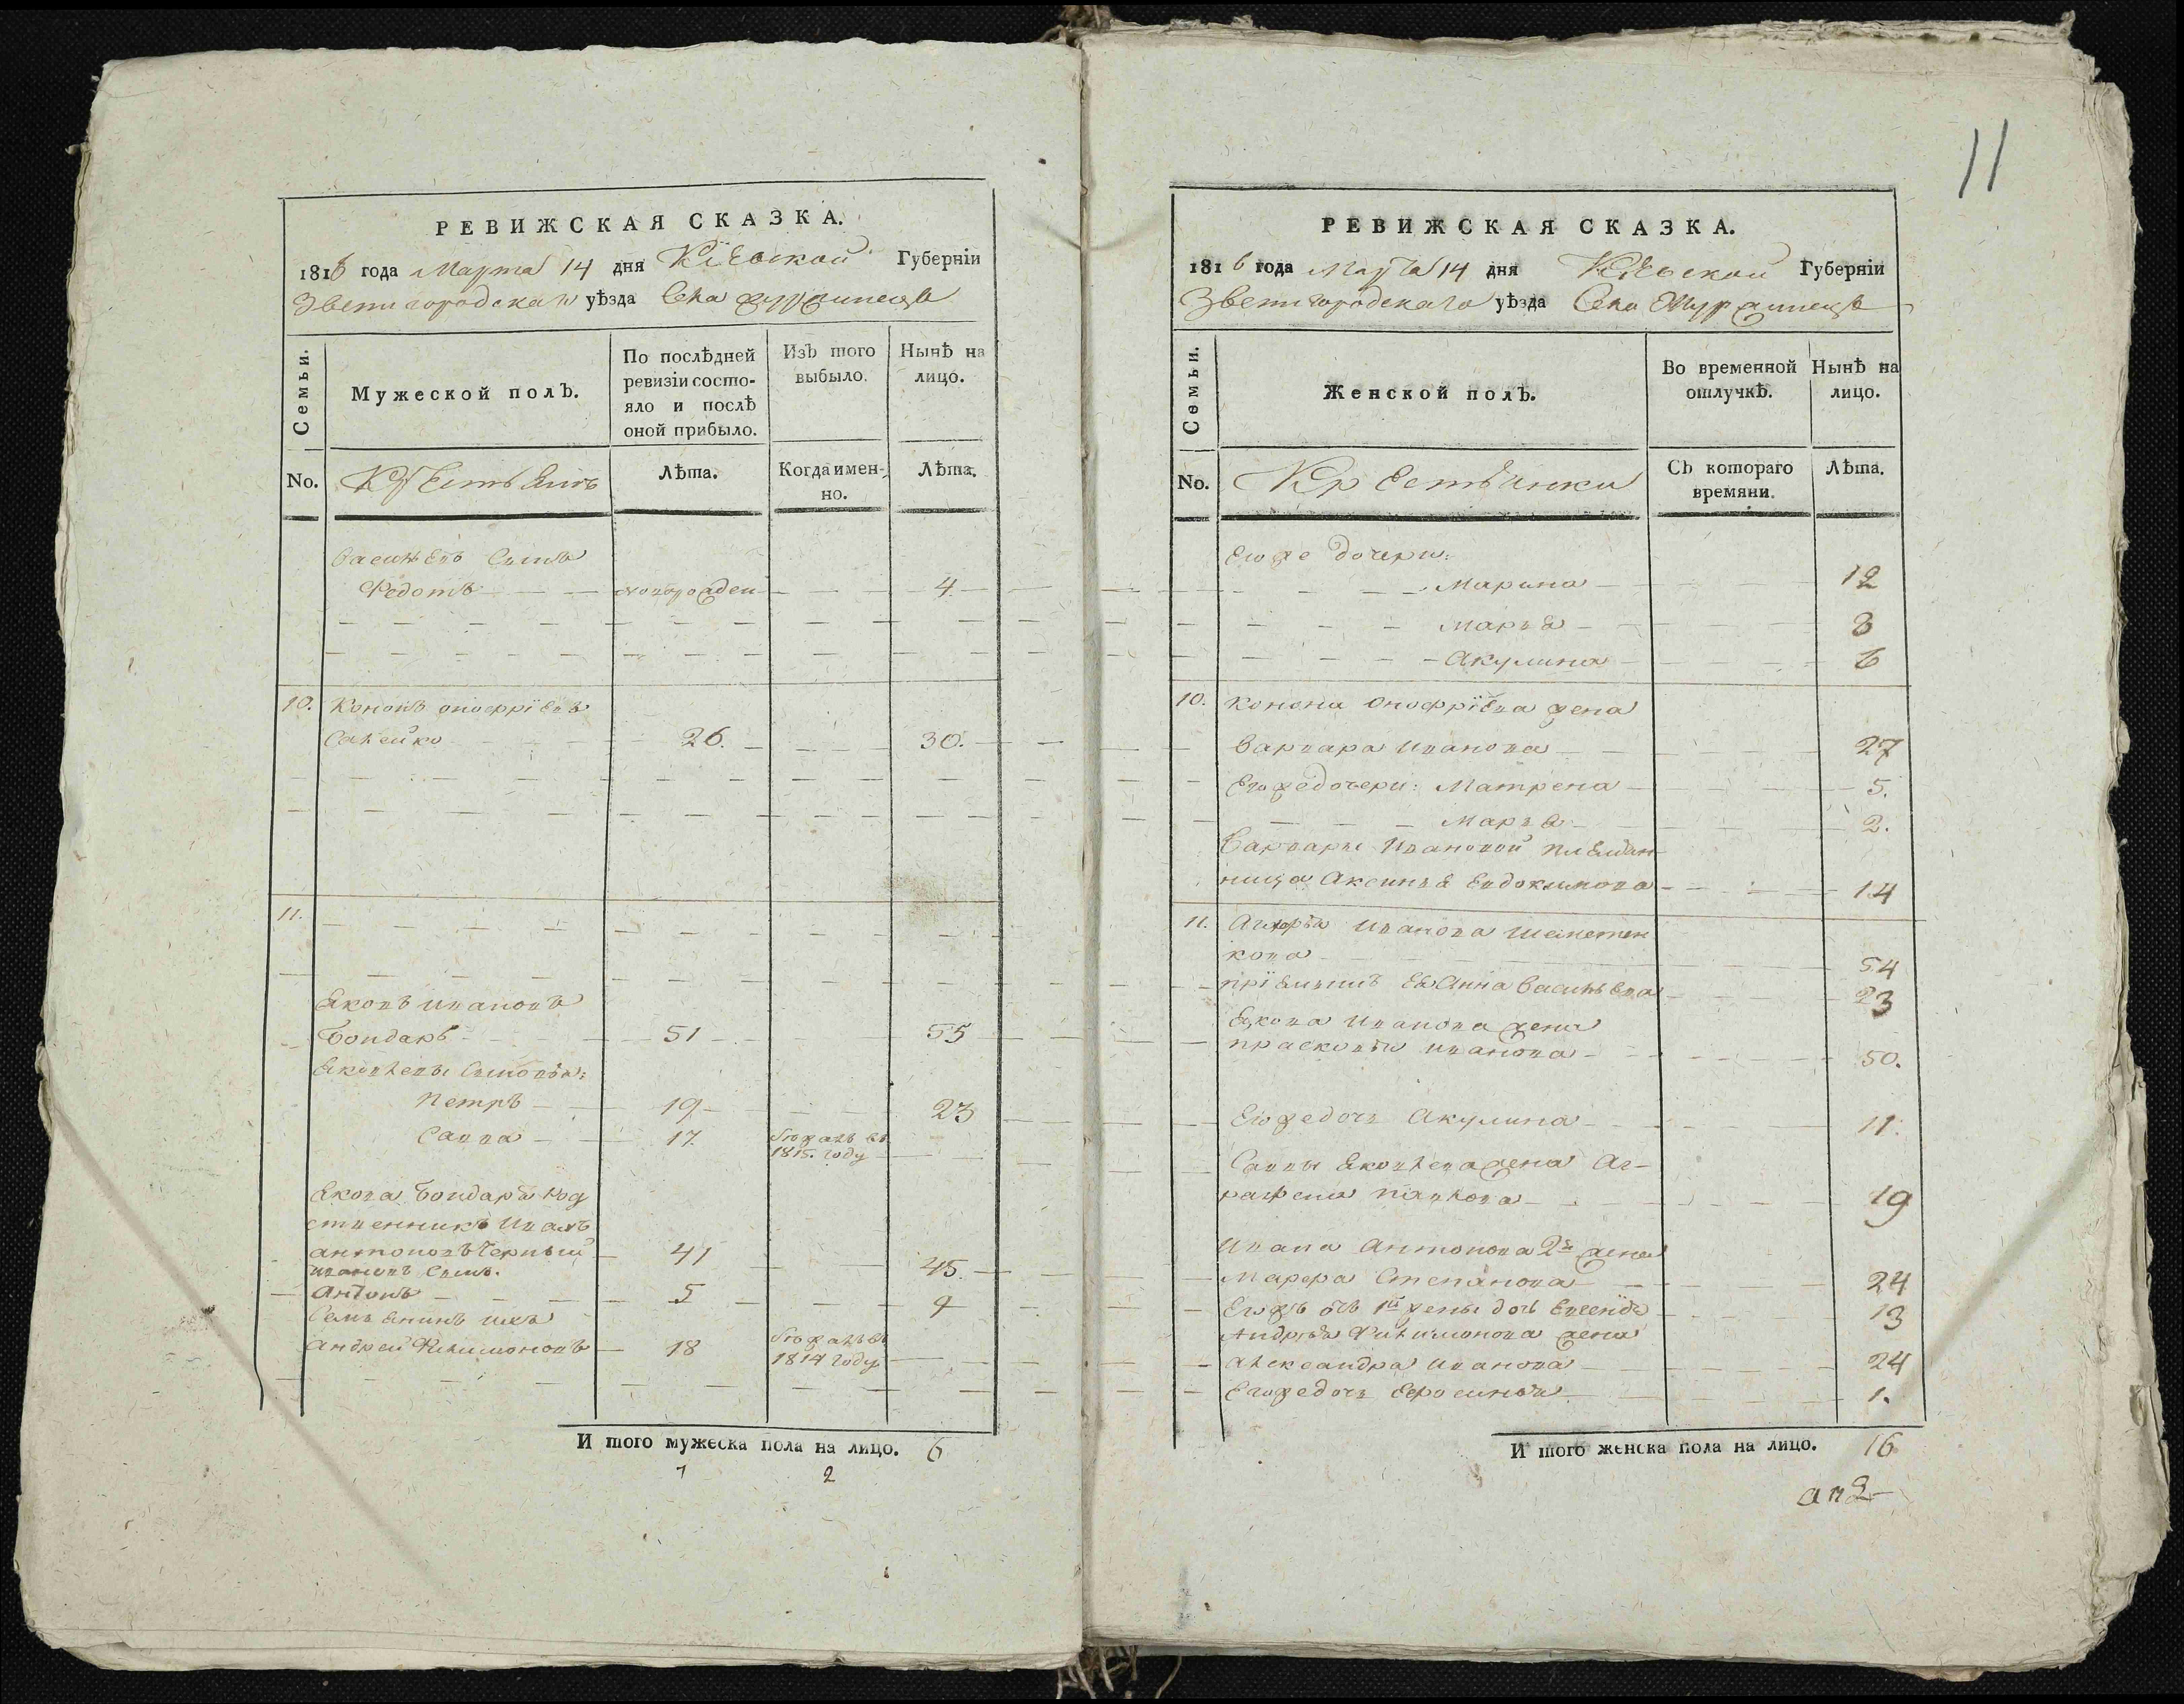 РЕВИЖСКАЯ СКАЗКА.
1816 года Марта 14 дня Кіевской Губерніи
Звенигородскаго уѣзда Села
Семьи.
Мужеской полъ.
По послѣдней
ревизіи состо-
яло и послѣ
оной прибыло.
Изъ того
выбыло.
Нынѣ на
лицо.
No.
Лѣта.
Когда имен-
но.
Лѣта.
Васильевъ Сынъ
Федотъ новорожден 4
10. Кононъ Онофріевъ
26. 30.
11.
Яковъ Ивановъ
Бондарь 51 55
Яковлевы Сыновья:
Петръ 19 23
Савва 17. въ
1815. году
Якова Бондаря род
ственникъ Иванъ
Антоновъ Черный 41 45.
Ивановъ Сынъ.
Антонъ 5 9
Семьянинъ ихъ
Андрей Филимоновъ 18 въ
1814 году
И того мужеска пола на лицо. 6
7 2
11
РЕВИЖСКАЯ СКАЗКА.
1816 года Марта 14 дня Кіевской Губерніи
Звенигородскаго уѣзда Села
Семьи.
Женской полъ.
Во временной
отлучкѣ.
Нынѣ на
лицо.
No.
Крестьянки
Съ котораго
времяни.
Лѣта.
Егоже дочери:
Марина 12
Марья 8
Акулина 6
10. Конона Онофріева жена
Варвара Иванова 27
Егоже дочери: Матрена 5.
Марья 2.
Варвары Ивановой племян
ница Аксинья Евдокимова 14
11. Иванова
кова 54
ея Анна Васильева 23
Якова Иванова жена
Прасковья Иванова 50.
Егоже дочь Акулина 11.
Саввы Яковлева жена Аг-
рафена Павлова 19
Ивана Антонова 2я жена
Марфа Степанова 24
Егожъ отъ 1й жены дочь 13
Андрея Филимонова жена
Александра Иванова 24
Егоже дочь Ефросинья 1.
И того женска пола на лицо. 16